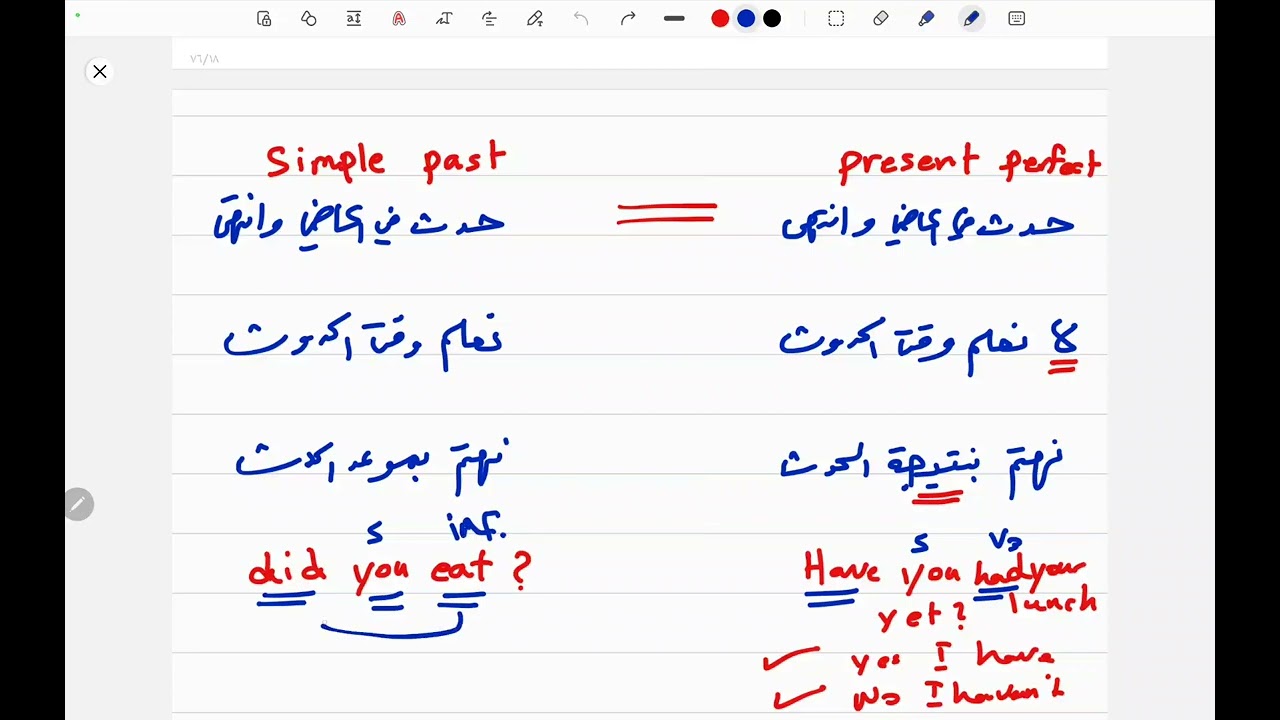 ٧٦/١٨
Simple past
present perfect
حدث في الماضي وانتهى
حدث في الماضي وانتهى
نعلم وقت الحدوث
لا نعلم وقت الحدوث
نهتم بموعد الحدث
نهتم بنتيجة الحدث
s inf.
s V3
did you eat ?
Have you had your lunch
yet ?
yes I have
No I haven't